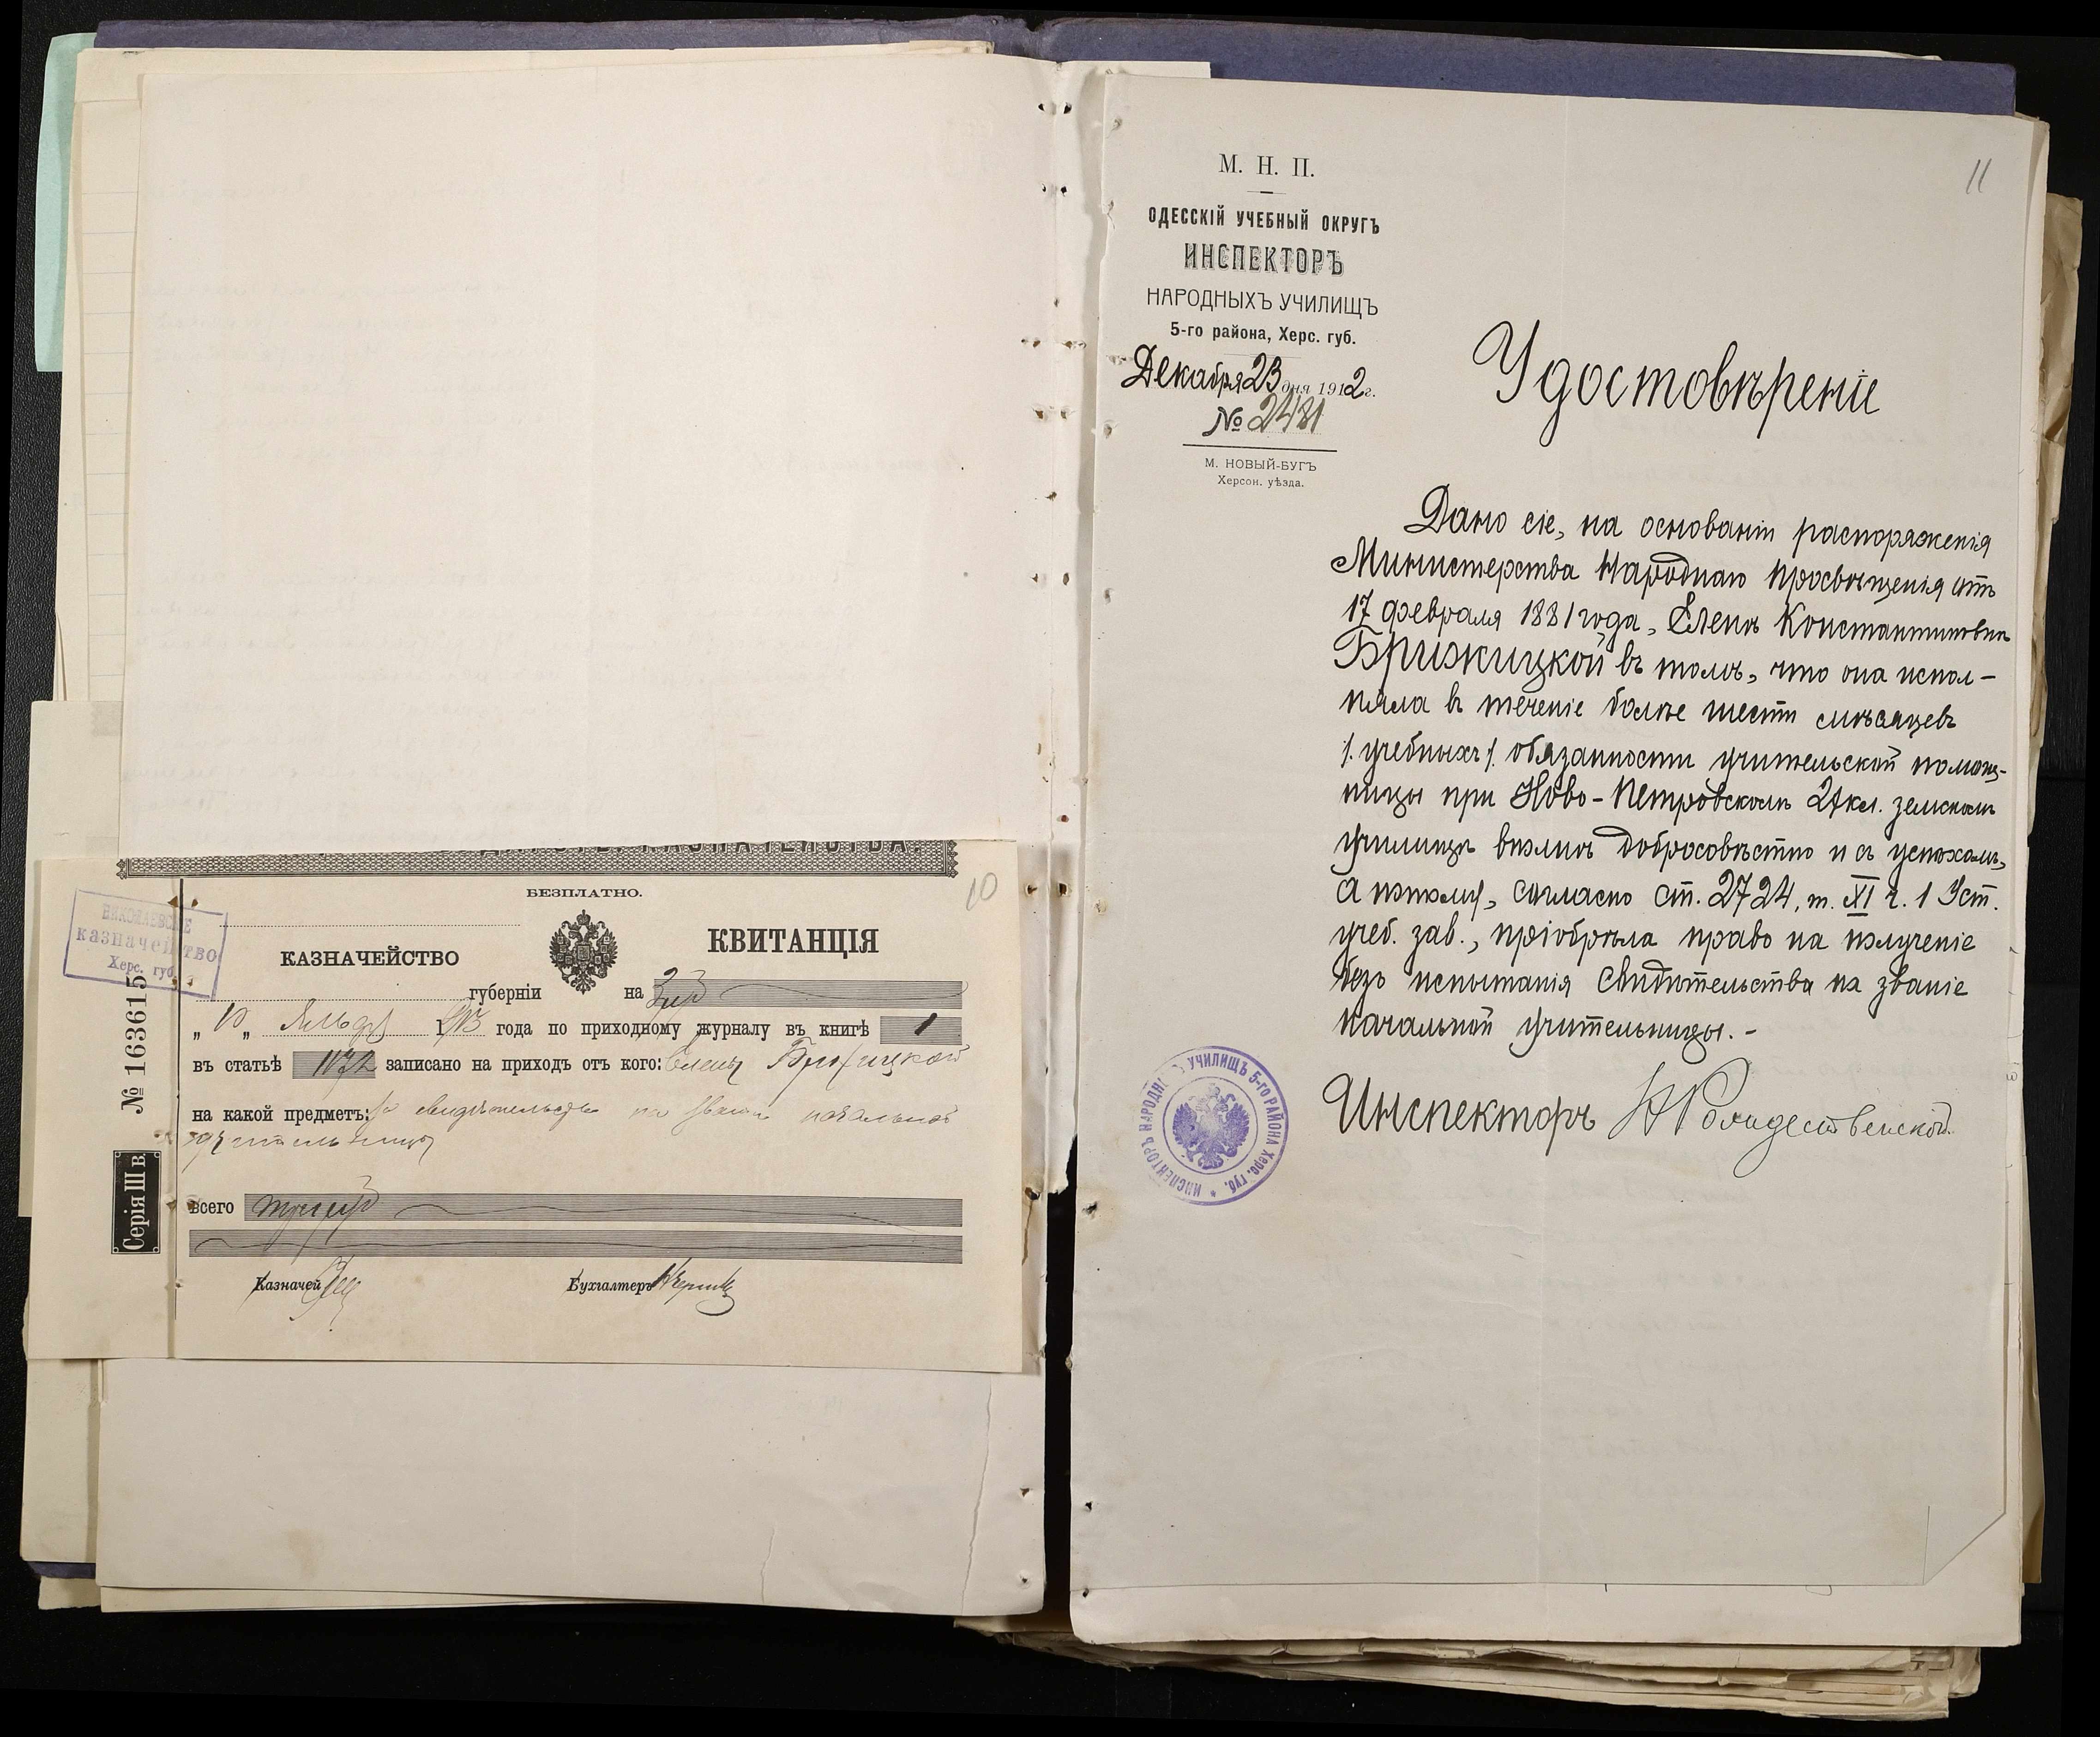 БЕЗПЛАТНО.
10
НИКОЛАЕВСКОЕ
казначейство
Херс. губ.
КАЗНАЧЕЙСТВО
КВИТАНЦІЯ
губерніи на 3 р
„ 10 „ 1913 года по приходному журналу въ книгѣ 1
въ статьѣ записано на приходъ отъ кого: Елены Брижицкой
на какой предметъ: за свидѣтельство на званіе начальной
учительницы
всего три руб
Казначей
Бухгалтеръ
№ 163615
Серія III в.
11
М. Н. П.
ОДЕССКІЙ УЧЕБНЫЙ ОКРУГЪ
ИНСПЕКТОРЪ
НАРОДНЫХЪ УЧИЛИЩЪ
5-го района, Херс. губ.
Декабря 23 дня 1912 г.
№ 2431
М. НОВЫЙ-БУГЪ
Херсон. уѣзда.
Удостовѣреніе
Дано сіе, на основаніи распоряженія
Министерства Народнаго Просвѣщенія отъ
17 февраля 1881 года, Еленѣ Константиновнѣ
Брижицкой въ томъ, что она испол-
няла въ теченіе болѣе шести мѣсяцевъ
/. учебныхъ /. обязанности учительской помощ-
ницы при Ново-Петровскомъ 2хкл. земскомъ
училищѣ вполнѣ добросовѣстно и съ успѣхомъ,
а потому, согласно ст. 2724, т. XI ч. 1 Уст.
учеб. зав., пріобрѣла право на полученіе
безъ испытанія свидѣтельства на званіе
начальной учительницы. -
Инспекторъ Н Рождественскій
ИНСПЕКТОРЪ НАРОДНЫХЪ УЧИЛИЩЪ 5-го РАЙОНА Херс. губ. *